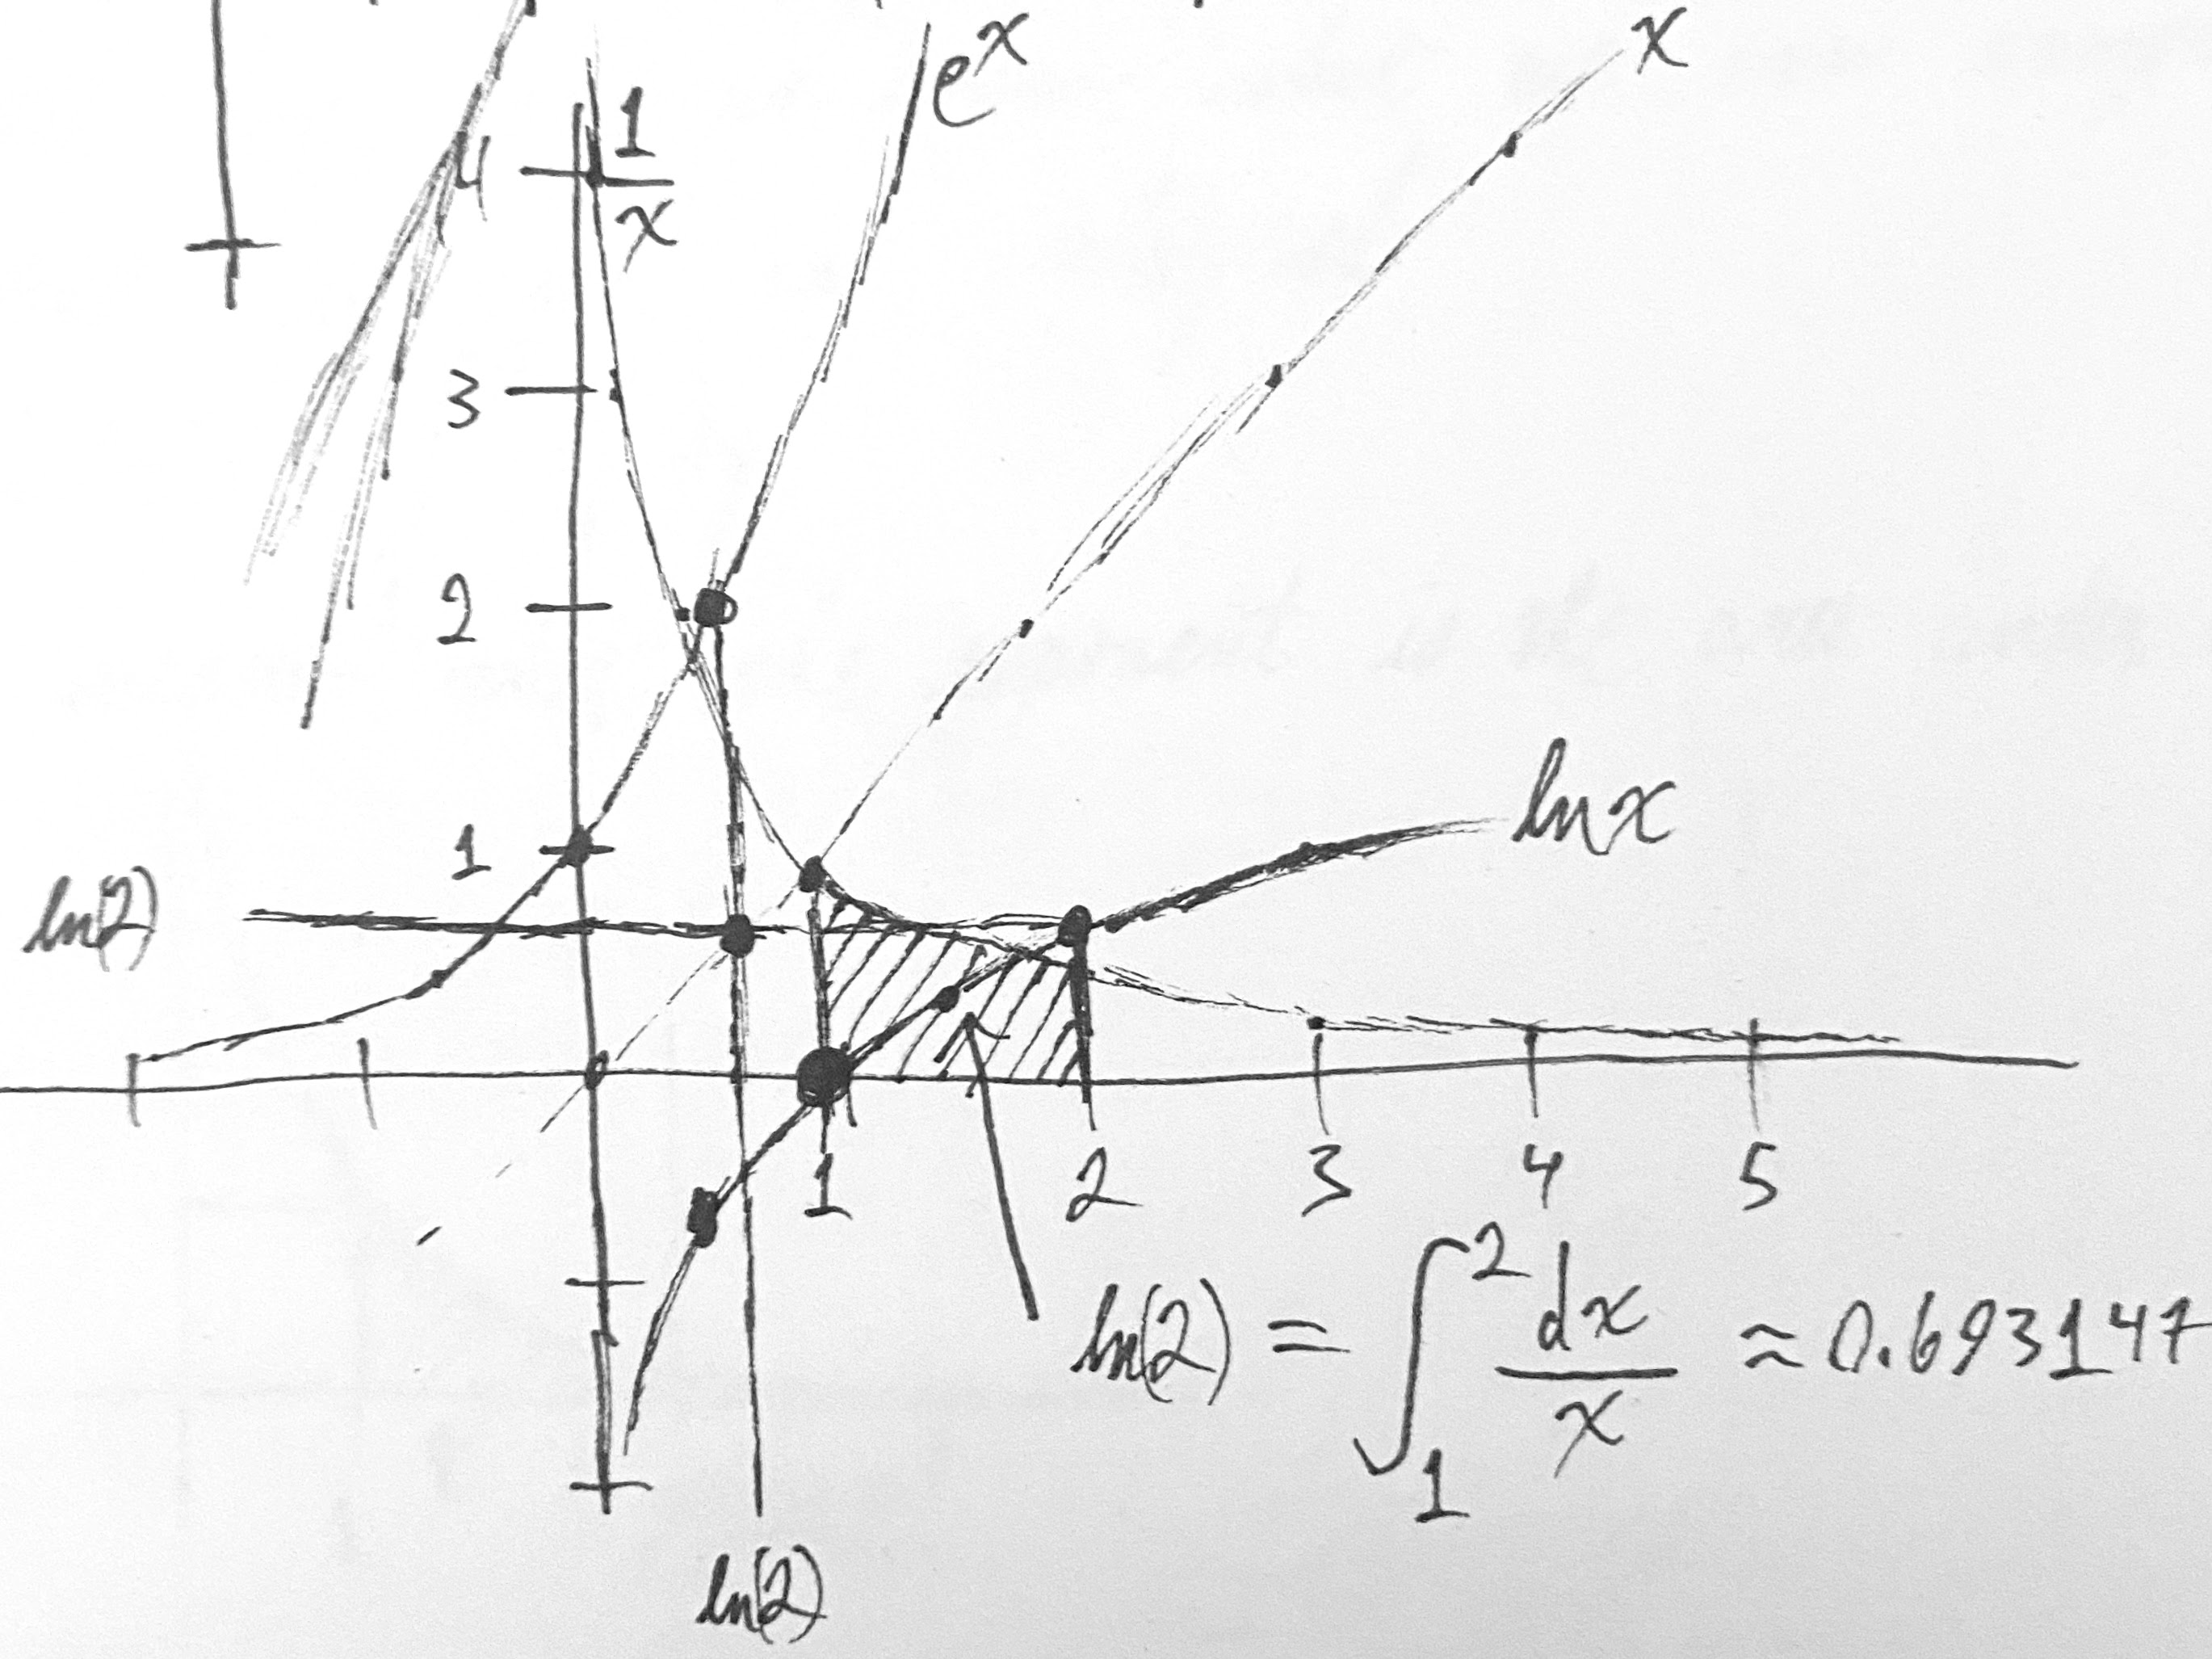 e^x
x
1/x
4
3
2
1
ln x
ln(2)
1 2 3 4 5
ln(2) = ∫_1^2 dx/x ≈ 0.693147
ln(2)